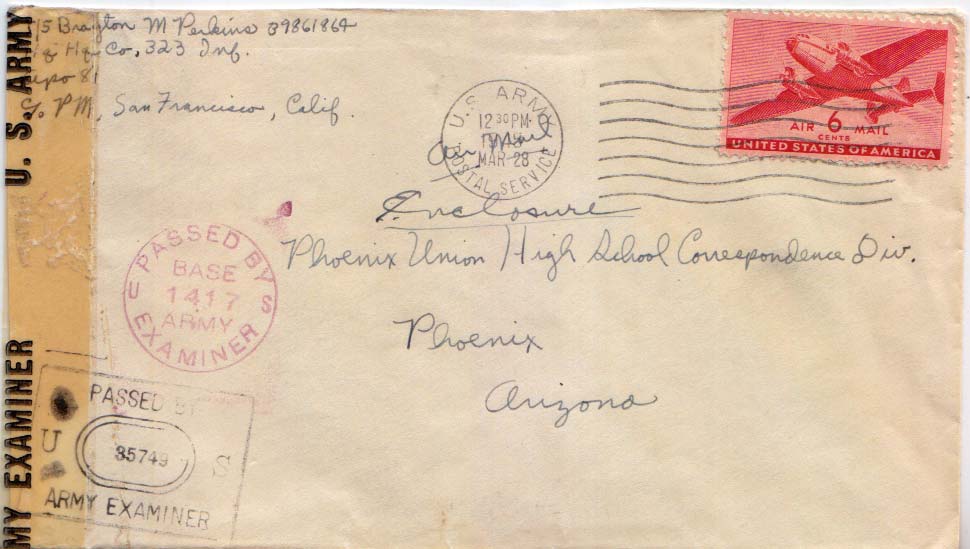 Brayton M Perkins 39861864
Hq Co, 323 Inf.
81
PM, San Francisco, Calif.
U.S. ARMY
12 30 PM
MAR 28
POSTAL SERVICE
Air Mail
AIR 6 MAIL
CENTS
UNITED STATES OF AMERICA
Enclosure
Phoenix Union High School Correspondence Div.
Phoenix
Arizona
PASSED BY
BASE
1417
ARMY
U S
EXAMINER
PASSED BY
U 35749 S
ARMY EXAMINER
U.S. ARMY
MY EXAMINER